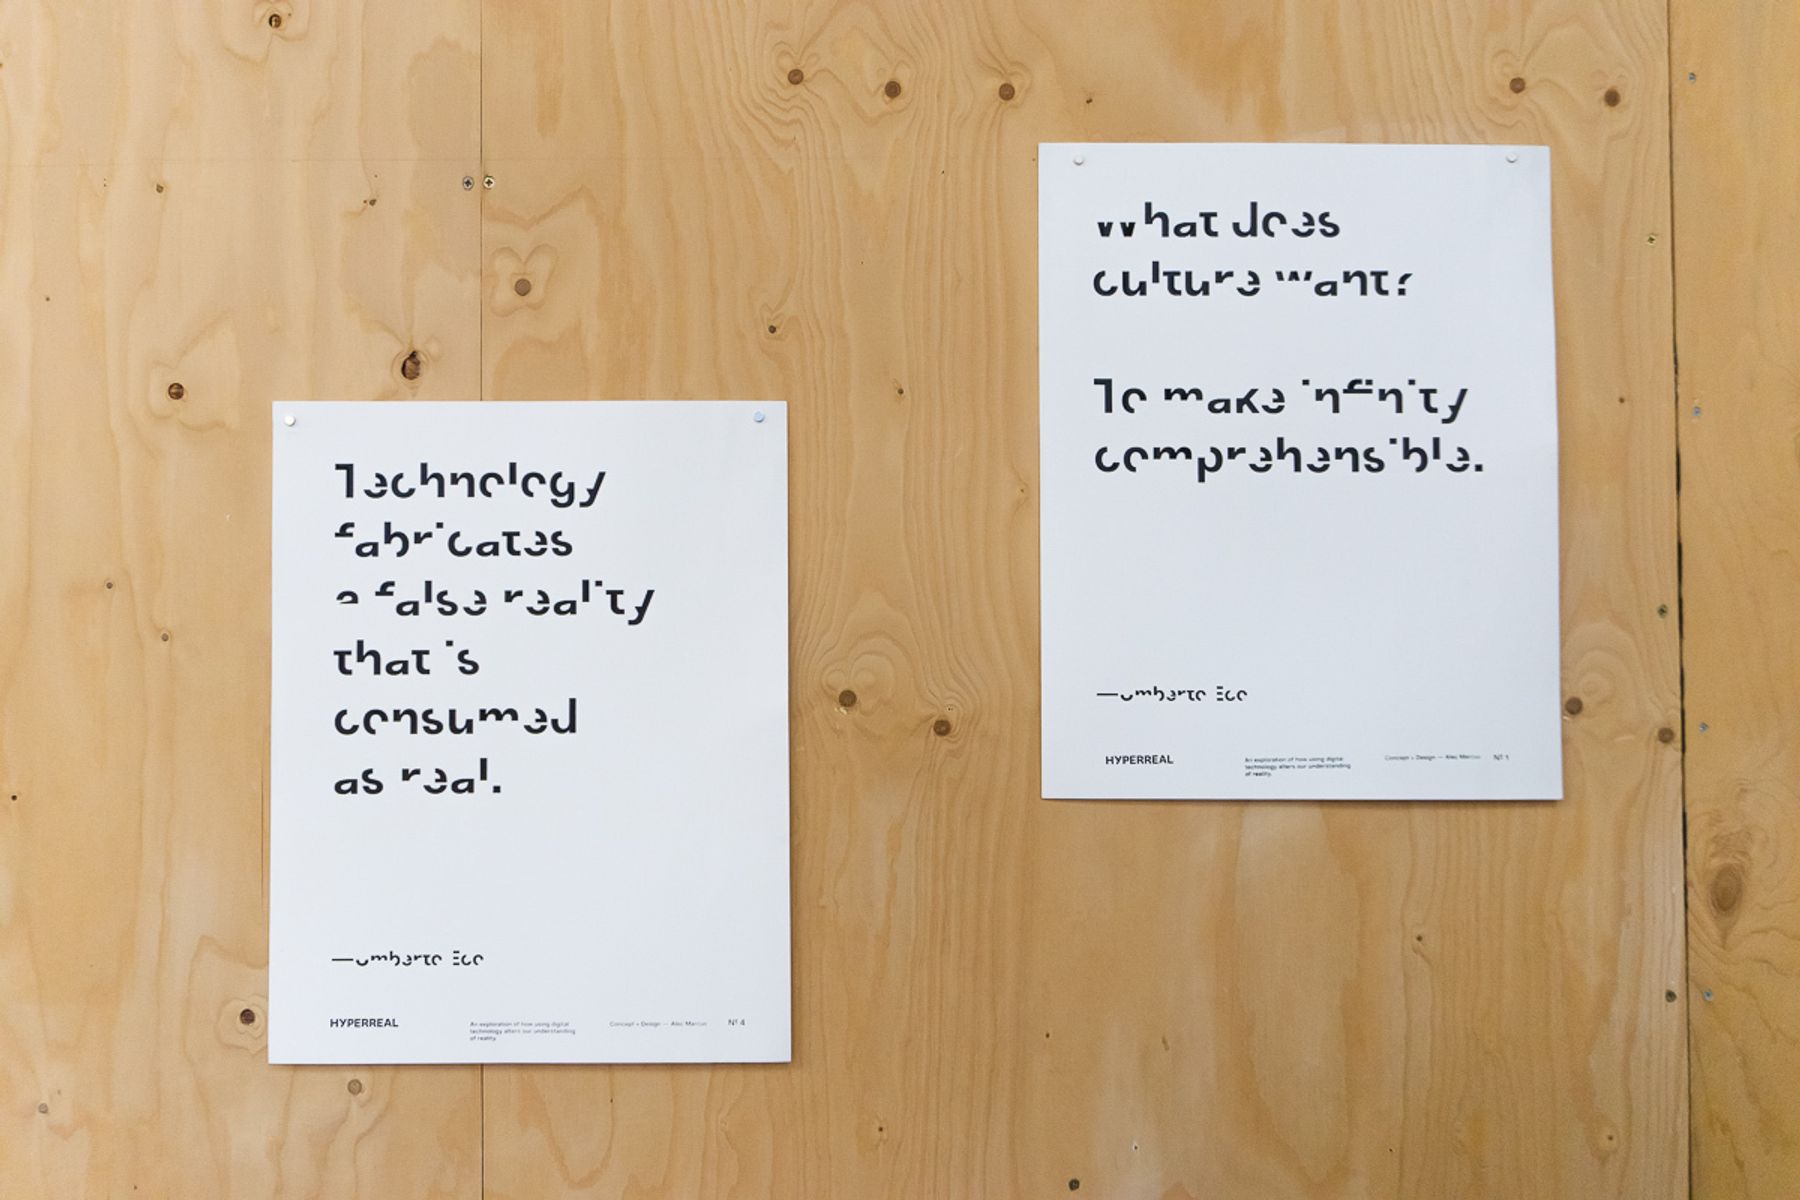 Technology
fabricates
a false reality
that is
consumed
as real.
—Umberto Eco
HYPERREAL
An exploration of how using digital
technology alters our understanding
of reality.
Concept + Design — Alec Marcus
Nº 4
What does
culture want?
To make infinity
comprehensible.
—Umberto Eco
HYPERREAL
An exploration of how using digital
technology alters our understanding
of reality.
Concept + Design — Alec Marcus
Nº 1